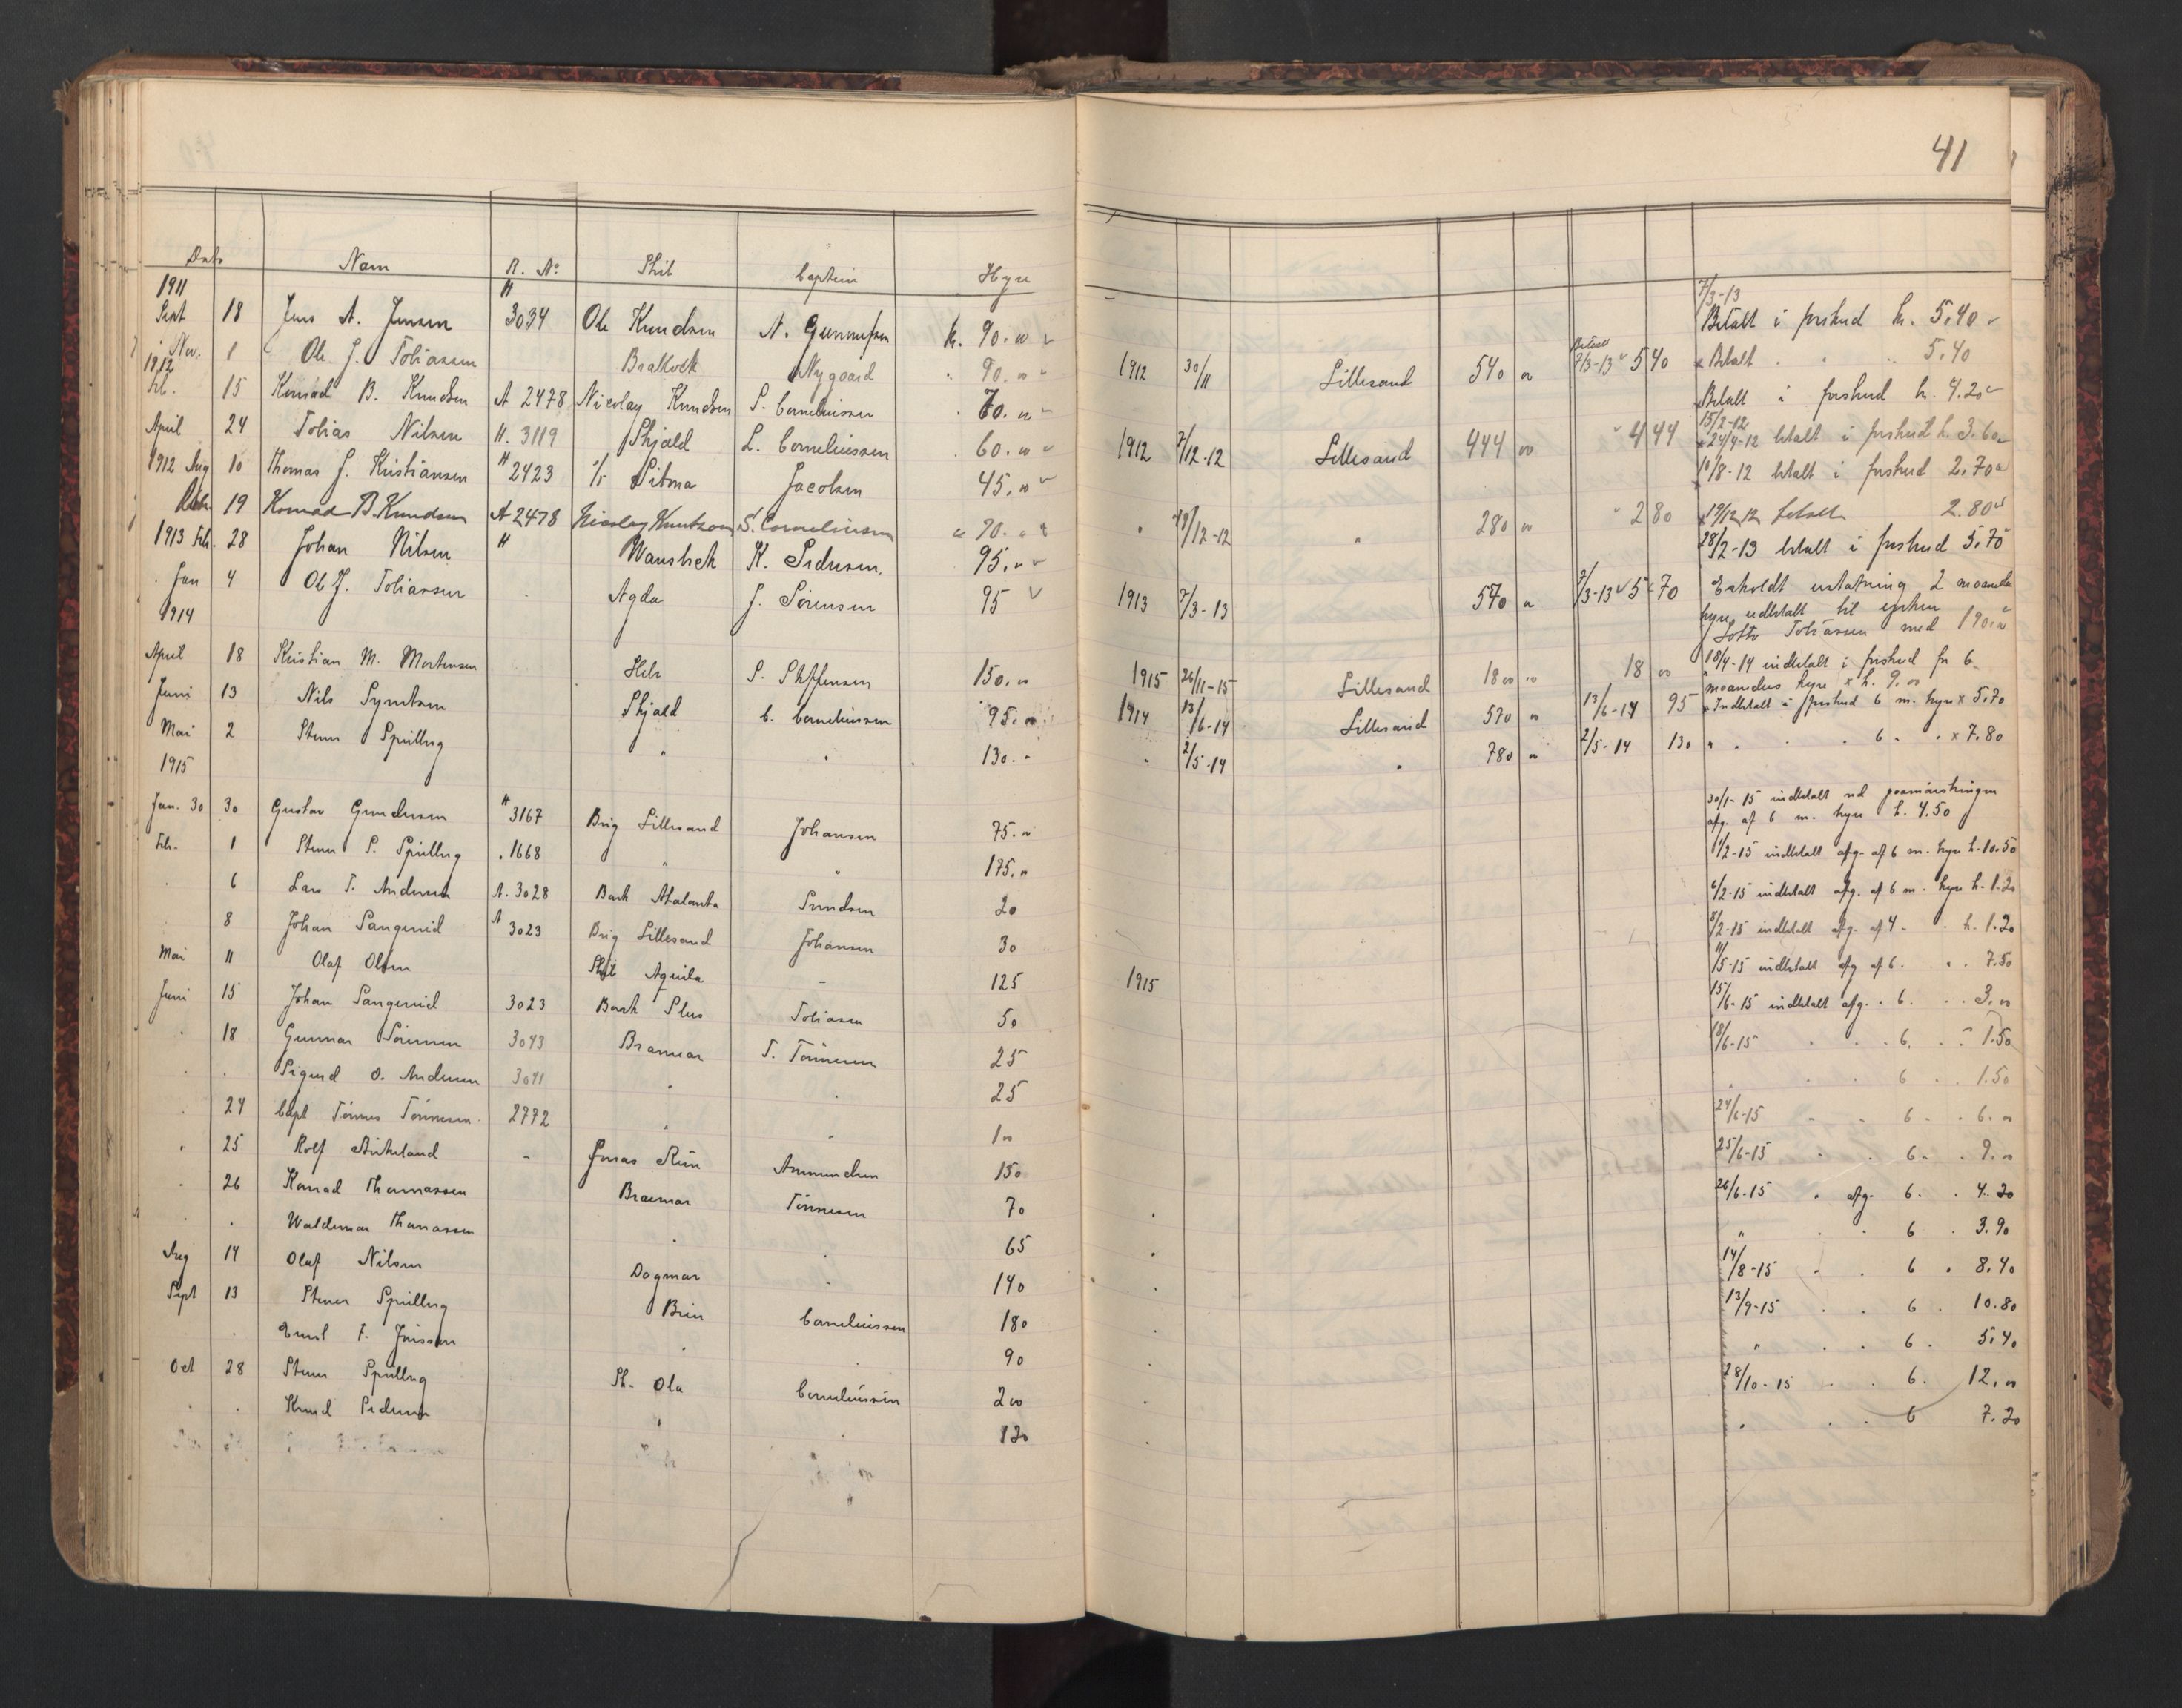 41
Dato Navn A. No Skib Captein Hyre
1911 A 7/3-13
Sept 18 Jens A. Jensen 3034 Ole Knudsen N. Gunnufsen kr. 90.00 Betalt i forskud kr. 5.40
Nov. 1 Ole J. Tobiassen Nygaard 90.00 1912 30/11 Lillesand 540 00 Betalt 7/3-13 5 40 Betalt 5.40
1912
Feb. 15 Konrad B. Knudsen A 2478 Nicolay Knudsen S. Corneliussen 70.00 Betalt i forskud kr. 4.20
15/2-12
April 24 Tobias Nilsen A. 3119 Skjold L. Corneliussen 60.00 1912 7/12-12 Lillesand 444 00 4 44 24/4-12 betalt i forskud k. 3.60
1912 Aug 10 Thomas J. Kristiansen A 2423 Sitma Jacobsen 45.00 10/8-12 betalt i forskud 2.70
19 Konrad B. Knudsen A 2478 Nicolay Knutzon S. Corneliussen 70. " 19/12-12 " 280 00 " 2 80 19/12 12 betalt 2.80
1913 Feb. 28 Johan Nilsen A Wansbek K. Pedersen. 95. 28/2-13 betalt i forskud 5.70
Jan 4 Ole J. Tobiassen Agda J. Sörensen 95 1913 7/3-13 570 7/3-13 5 70 Erholdt erstatning 2 maaneders
1914 hyre udbetalt til enken
Lotte Tobiassen med 190.00
April 18 Kristian M. Mortensen Hebe S. Steffensen 150.00 1915 26/11-15 Lillesand 18 00 18 00 18/4-14 indbetalt i forskud for 6
maaneders hyre x k. 9.00
Juni 13 Nils Syvertsen Skjold C. Corneliussen 95.00 1914 13/6-14 Lillesand 570 00 13/6-14 95 Indbetalt i forskud 6 m. hyre x 5.70
Mai 2 Stener Spilling " " 130. " 2/5-14 " 780 00 2/5-14 130 " 6 x 7.80
1915
Jan. 30 30 Gustav Gundersen A 3167 Brig Lillesand Johansen 75.00 30/1-15 indbetalt ved paamönstringen
afg. af 6 m. hyre k. 4.50
Feb. 1 Stener S. Spilling . 1668 " " 175.00 1/2-15 indbetalt afg. af 6 m. hyre k. 10.50
6 Lars T. Andersen A. 3028 Bark Atalanta Svendsen 20 6/2-15 indbetalt afg. af 6 m. hyre k. 1.20
8 Johan Sangerud A 3023 Brig Lillesand Johansen 30 8/2-15 indbetalt afg. af 4 k. 1.20
Mai 11 Olaf Olsen Skib Aquila - 125 1915 11/5-15 indbetalt afg af 6. 7.50
Juni 15 Johan Sangerud 3023 Bark Plus Tobiasen 50 15/6-15 indbetalt afg. 6. 3.00
18 Gunnar Sörensen 3043 Braemar T. Tönnesen 25 18/6-15 6. 1.50
Sigurd O. Andersen 3041 " 25 " 6 1.50
24 Capt Tönnes Tönnesen 2772 " " 100 24/6-15 6 6.00
25 Rolf Birkeland - Jonas Amundsen 150 25/6-15 6. 9.00
26 Konrad Thomassen Braemar Tönnesen 70 26/6-15 afg. 6. 4.20
Waldemar Thomassen 65 " 6 3.90
Aug 14 Olaf Nilsen Dagmar 140 14/8-15 6 8.40
Sept 13 Stener Spilling Brin Corneliussen 180 13/9-15 6. 10.80
Emil F. Jörissen 90 " 6. 5.40
Oct 28 Stener Spilling Sk. Ola Corneliussen 200 28/10-15 6. 12.00
Knud Pedersen 120 " 6 7.20